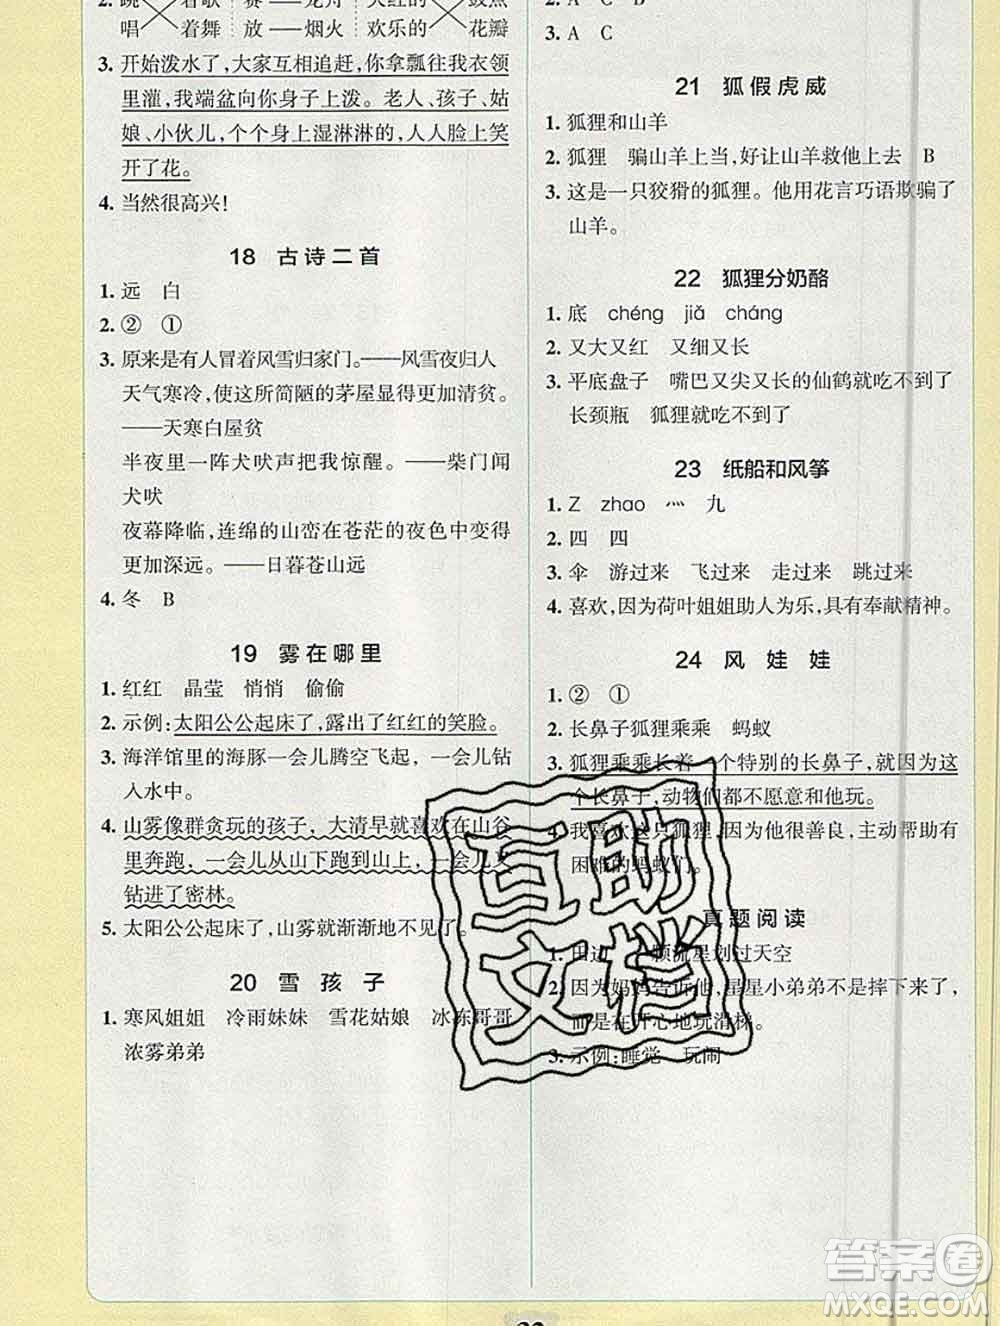 2. 跳 着歌 赛 龙舟 火红的 鼓点
唱 着舞 放 烟火 欢乐的 花瓣
3. 开始泼水了,大家互相追赶,你拿瓢往我衣领
里灌,我端盆向你身子上泼。老人、孩子、姑
娘、小伙儿,个个身上湿淋淋的,人人脸上笑
开了花。
4. 当然很高兴!
18 古诗二首
1. 远 白
2. ② ①
3. 原来是有人冒着风雪归家门。——风雪夜归人
天气寒冷,使这所简陋的茅屋显得更加清贫。
——天寒白屋贫
半夜里一阵犬吠声把我惊醒。——柴门闻
犬吠
夜幕降临,连绵的山峦在苍茫的夜色中变得
更加深远。——日暮苍山远
4. 冬 B
19 雾在哪里
1. 红红 晶莹 悄悄 偷偷
2. 示例:太阳公公起床了,露出了红红的笑脸。
3. 海洋馆里的海豚一会儿腾空飞起,一会儿钻
入水中。
4. 山雾像群贪玩的孩子,大清早就喜欢在山谷
里奔跑,一会儿从山下跑到山上,一会儿又
钻进了密林。
5. 太阳公公起床了,山雾就渐渐地不见了。
20 雪孩子
1. 寒风姐姐 冷雨妹妹 雪花姑娘 冰冻哥哥
浓雾弟弟
2. A C B
3. A C
21 狐假虎威
1. 狐狸和山羊
2. 狐狸 骗山羊上当,好让山羊救他上去 B
3. 这是一只狡猾的狐狸。他用花言巧语欺骗了
山羊。
22 狐狸分奶酪
1. 底 chéng jiǎ cháng
2. 又大又红 又细又长
3. 平底盘子 嘴巴又尖又长的仙鹤就吃不到了
长颈瓶 狐狸就吃不到了
23 纸船和风筝
1. Z zhao 灬 九
2. 四 四
3. 伞 游过来 飞过来 走过来 跳过来
4. 喜欢,因为荷叶姐姐助人为乐,具有奉献精神。
24 风娃娃
1. ② ①
2. 长鼻子狐狸乖乖 蚂蚁
3. 狐狸乖乖长着一个特别的长鼻子,就因为这
个长鼻子,动物们都不愿意和他玩。
4. 我喜欢这只狐狸,因为他很善良,主动帮助有
困难的蚂蚁们。
真题阅读
1. 田边 一颗流星划过天空
2. 因为妈妈告诉他,星星小弟弟不是摔下来了,
而是在开心地玩滑梯。
3. 示例:睡觉 玩闹
互助
文档
答案圈
MXQE.COM